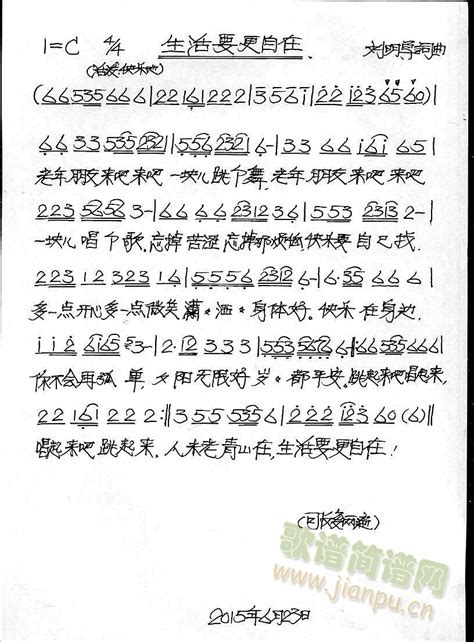 1=C 4/4 生活要更自在 刘明厚词曲
(活泼 快乐地)
(66 535 66 6|22 161 22 2|3561|22 123 65 60)|
66 33 535 532||556 232 1-|66 33 161 65|
老年朋友来吧来吧 一块儿跳个舞,老年朋友来吧来吧
223 5652 3-|666 2312 36|553 2313 2-|
一块儿唱个歌.忘掉苦涩忘掉那烦恼,快乐要自己找.
2231232316|5556 2312 6-|6·355 6 6|
多一点开心多一点微笑潇·洒·身体好.快乐在身边,
112 6165 3-|2·12333|
你不会再孤单,夕阳无限好岁·都平安.跳起来吧唱起来,
22 161 22 2:||355 5356|222 123 60 (6)||
唱起来吧跳起来.人来老青山在,生活要更自在!
歌谱简谱网
www.jianpu.cn
2015年6月23日